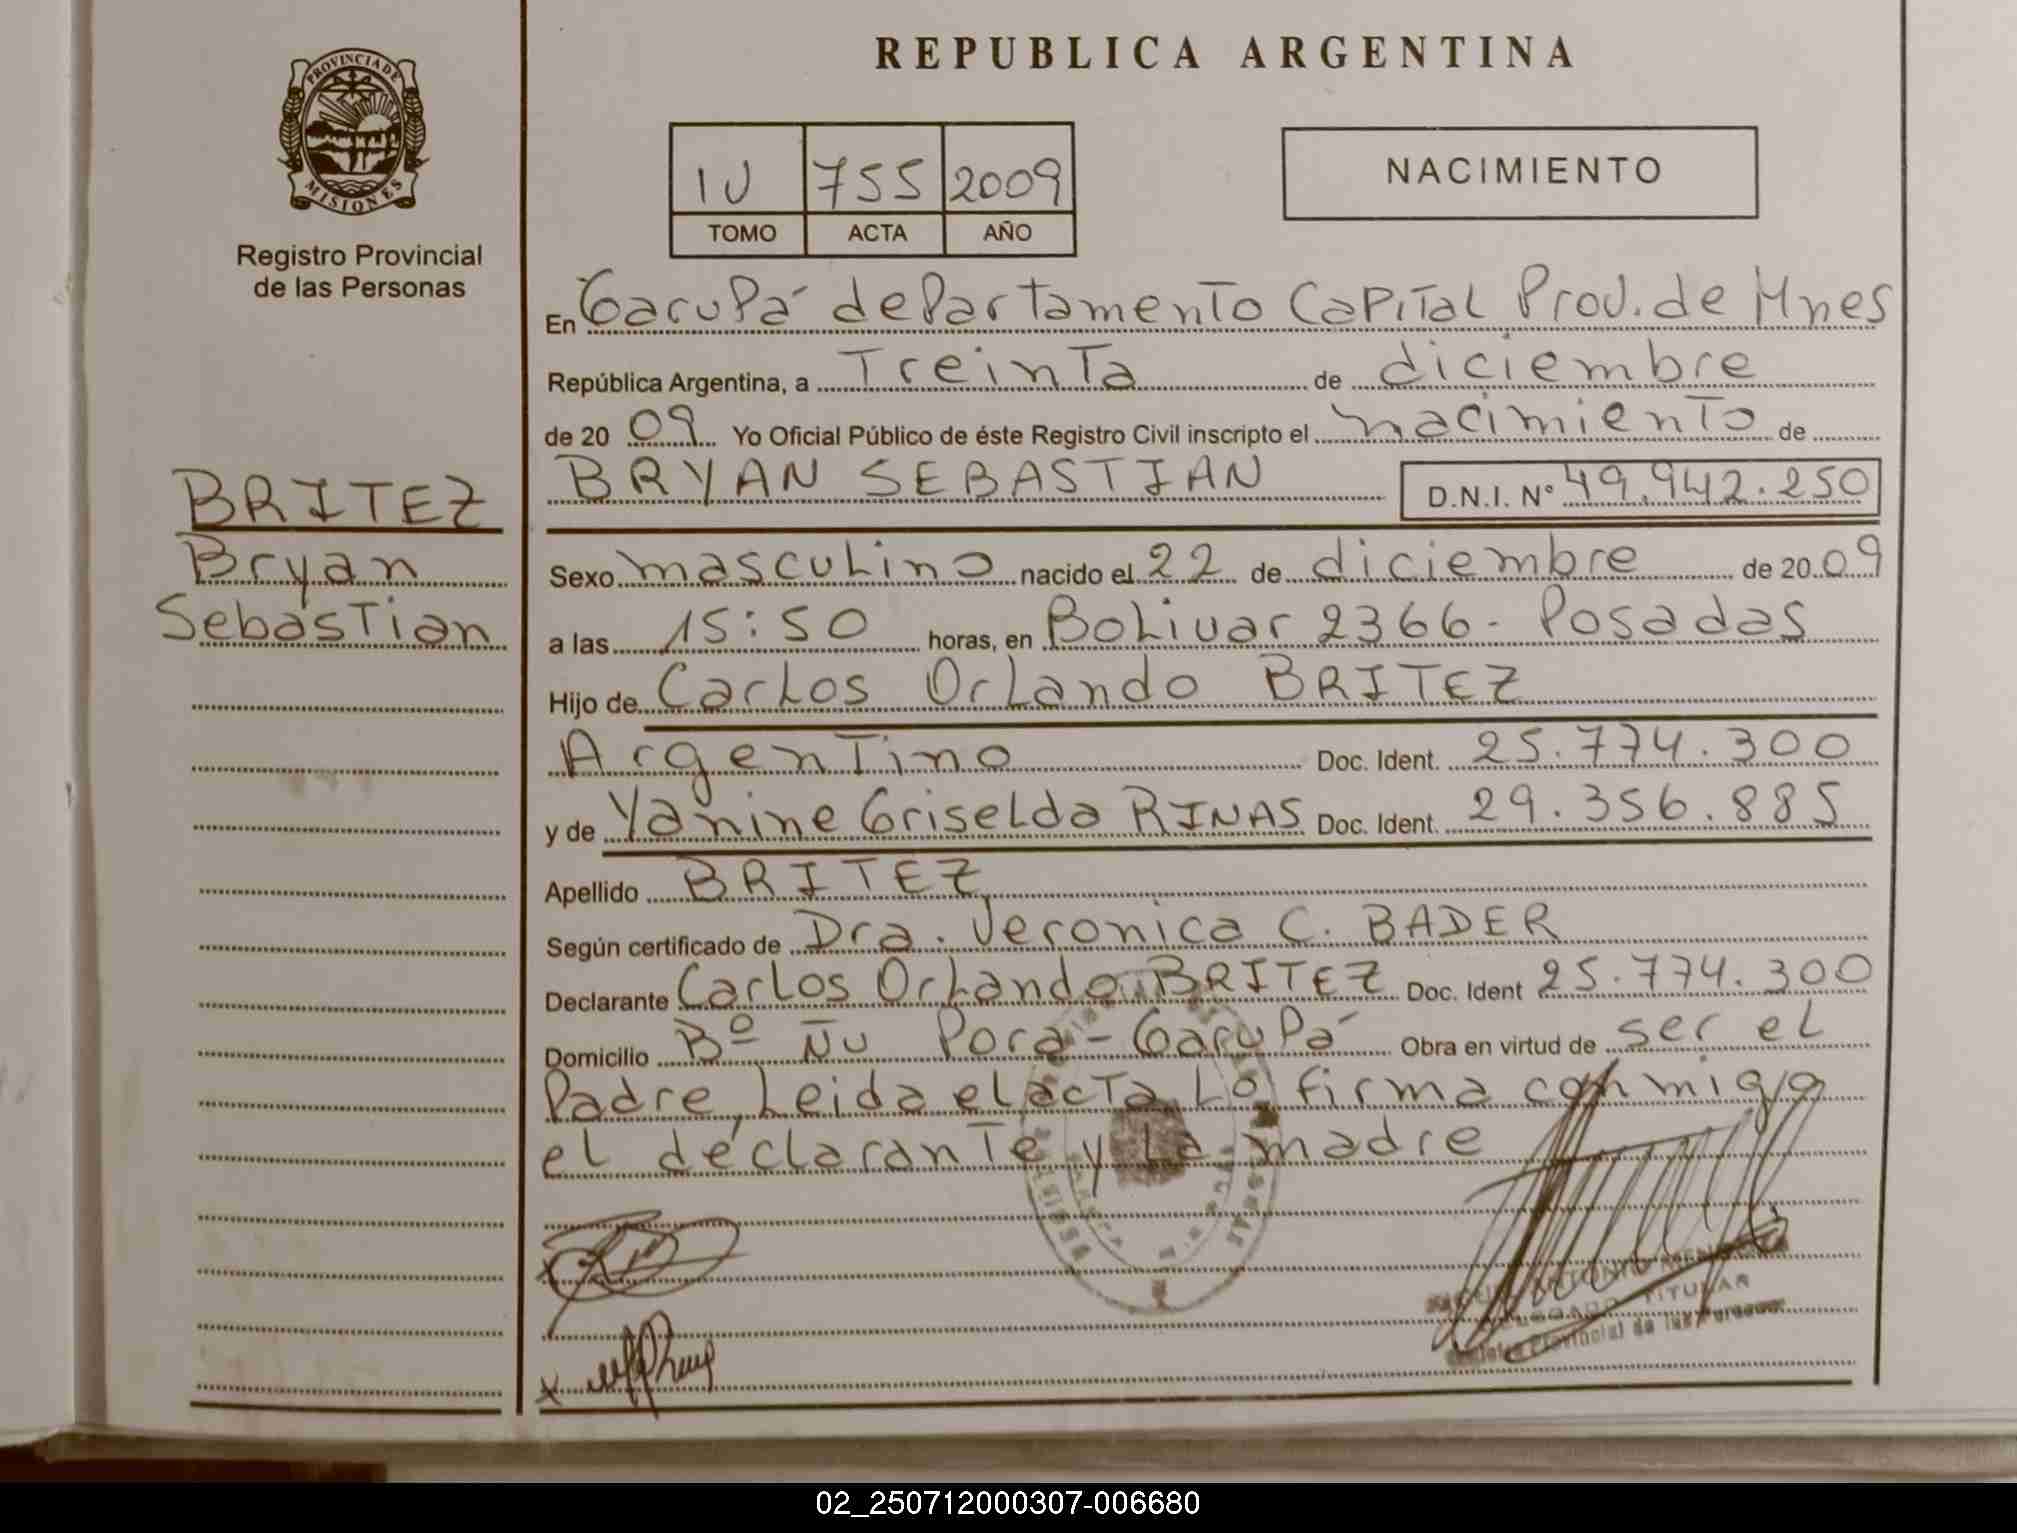 REPUBLICA ARGENTINA
PROVINCIA DE
MISIONES
Registro Provincial
de las Personas
IV 755 2009
TOMO ACTA AÑO
NACIMIENTO
En Garupá departamento Capital Prov. de Mnes
República Argentina, a Treinta de diciembre
de 20 09 Yo Oficial Público de éste Registro Civil inscripto el nacimiento de
BRYAN SEBASTIAN D.N.I. Nº 49.942.250
BRITEZ
Bryan
Sebastian
Sexo masculino nacido el 22 de diciembre de 20 09
a las 15:50 horas, en Bolivar 2366 - Posadas
Hijo de Carlos Orlando BRITEZ
Argentino Doc. Ident. 25.774.300
y de Yanine Griselda RINAS Doc. Ident. 29.356.885
Apellido BRITEZ
Según certificado de Dra. Veronica C. BADER
Declarante Carlos Orlando BRITEZ Doc. Ident 25.774.300
Domicilio Bº Ñu Pora - Garupá Obra en virtud de ser el
Padre, Leida el acta lo firma conmigo
el declarante y la madre
ANTONIO
TITULAR
Provincial de las Personas
02_250712000307-006680